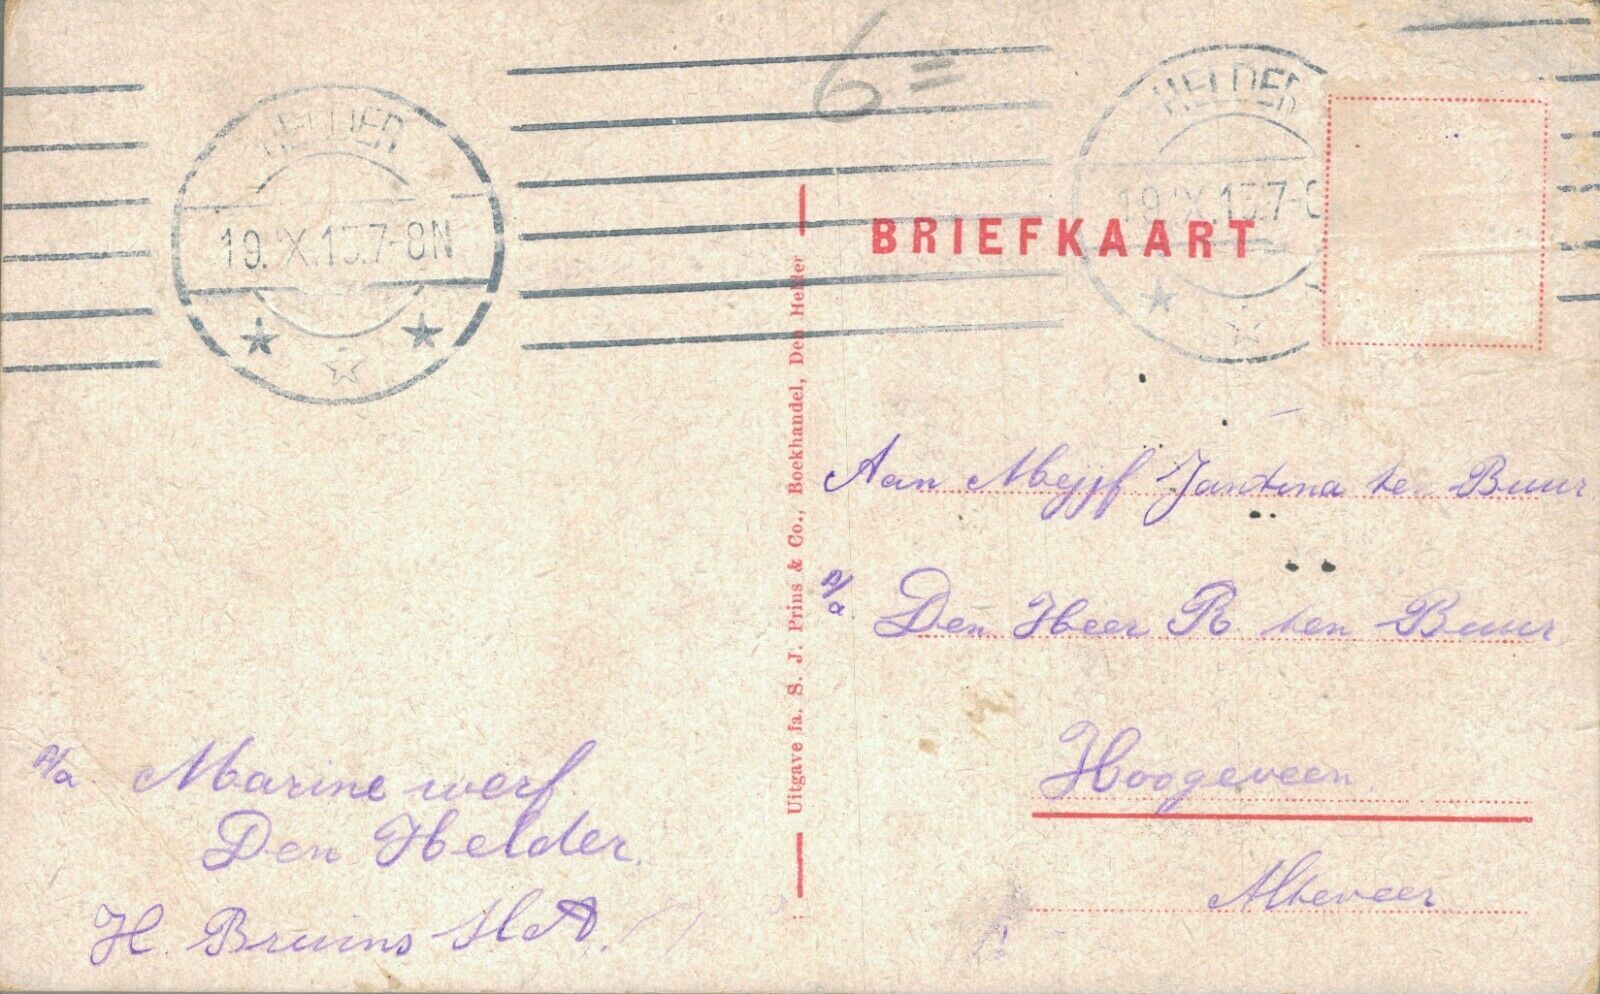 6=
HELDER
19.X.15.7-8N
HELDER
19.X.15.7-8
BRIEFKAART
Uitgave fa. S. J. Prins & Co., Boekhandel, Den Helder
Aan Mejjf Jantina ten Buur
p/a. Den Heer R. ten Buur
Hoogeveen.
Alteveer
p/a Marine werf.
Den Helder.
H. Bruins